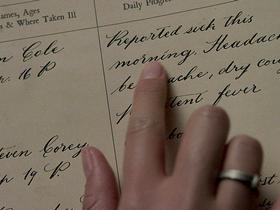 ames, Ages
& Where Taken Ill
Daily Progre
n Cole
r. 16 P
Reported sick this
morning. Headach
ache, dry cou
tent fever
teven Corey
p 19 P.